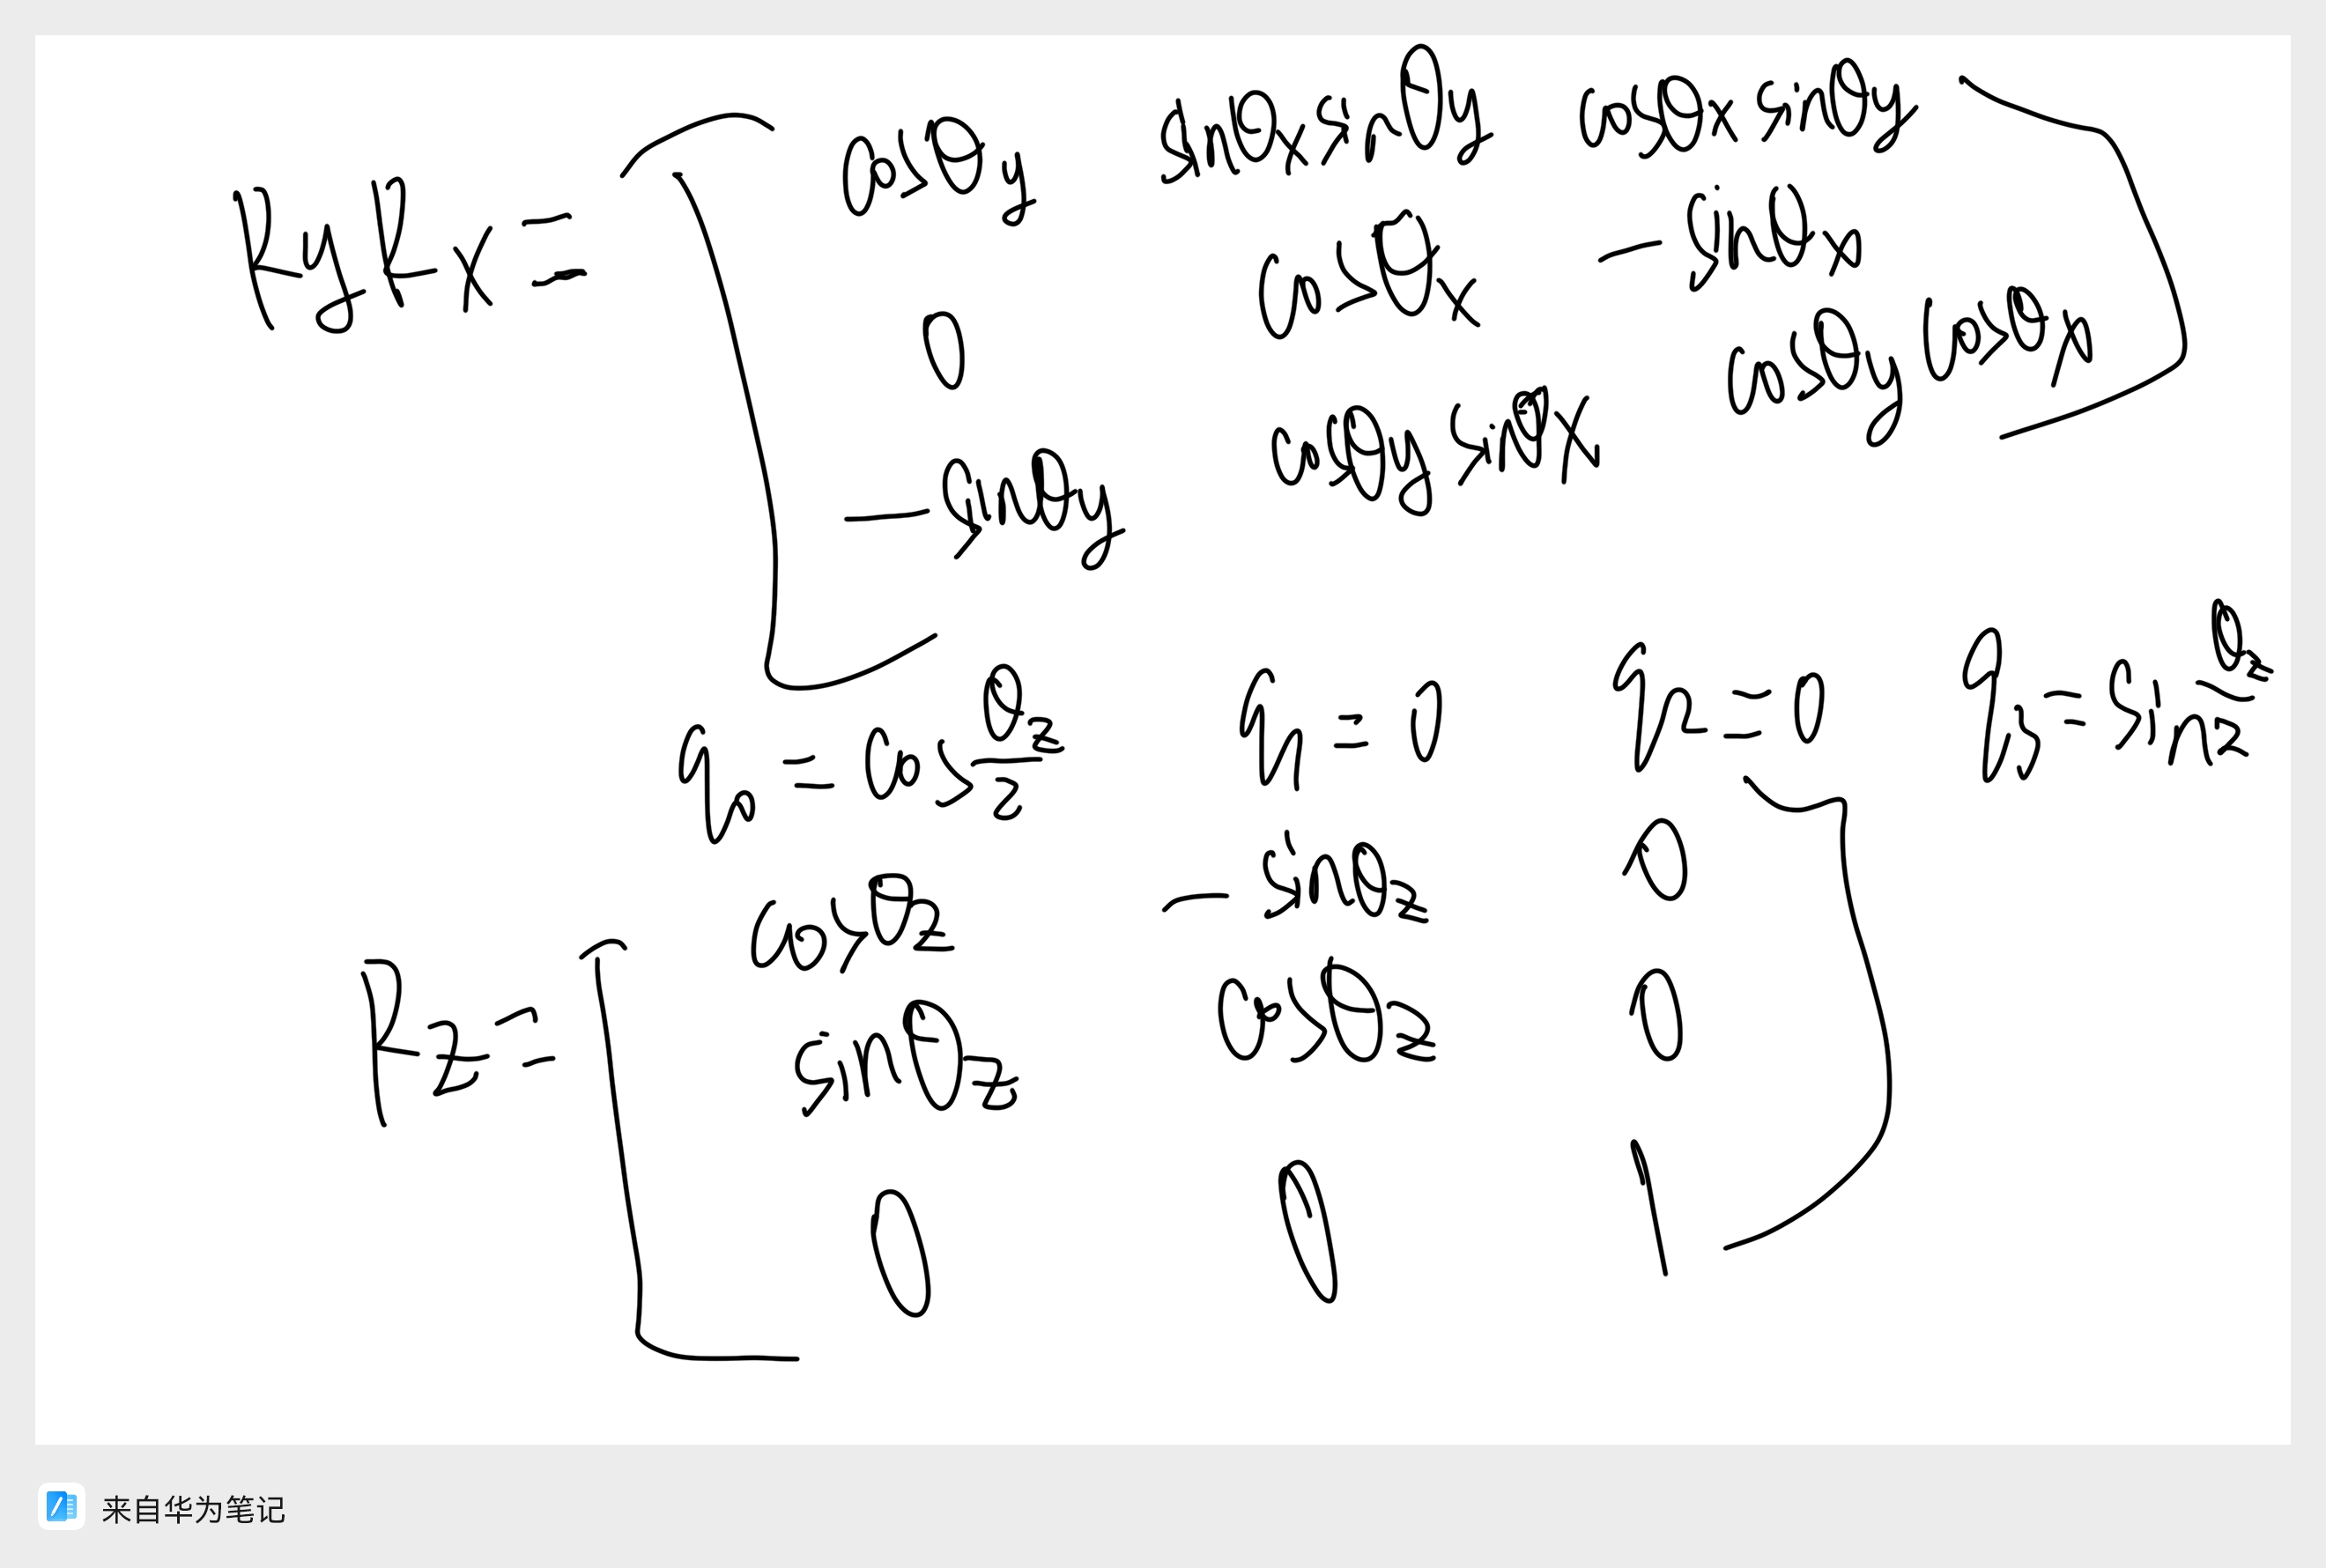 cosθy sinθx sinθy cosθx sinθy
RyRx = 0 cosθx -sinθx
-sinθy cosθy sinθx cosθy cosθx
q0 = cos θz/2 q1 = 0 q2 = 0 q3 = sin θz/2
cosθz -sinθz 0
Rz = sinθz cosθz 0
0 0 1
来自华为笔记